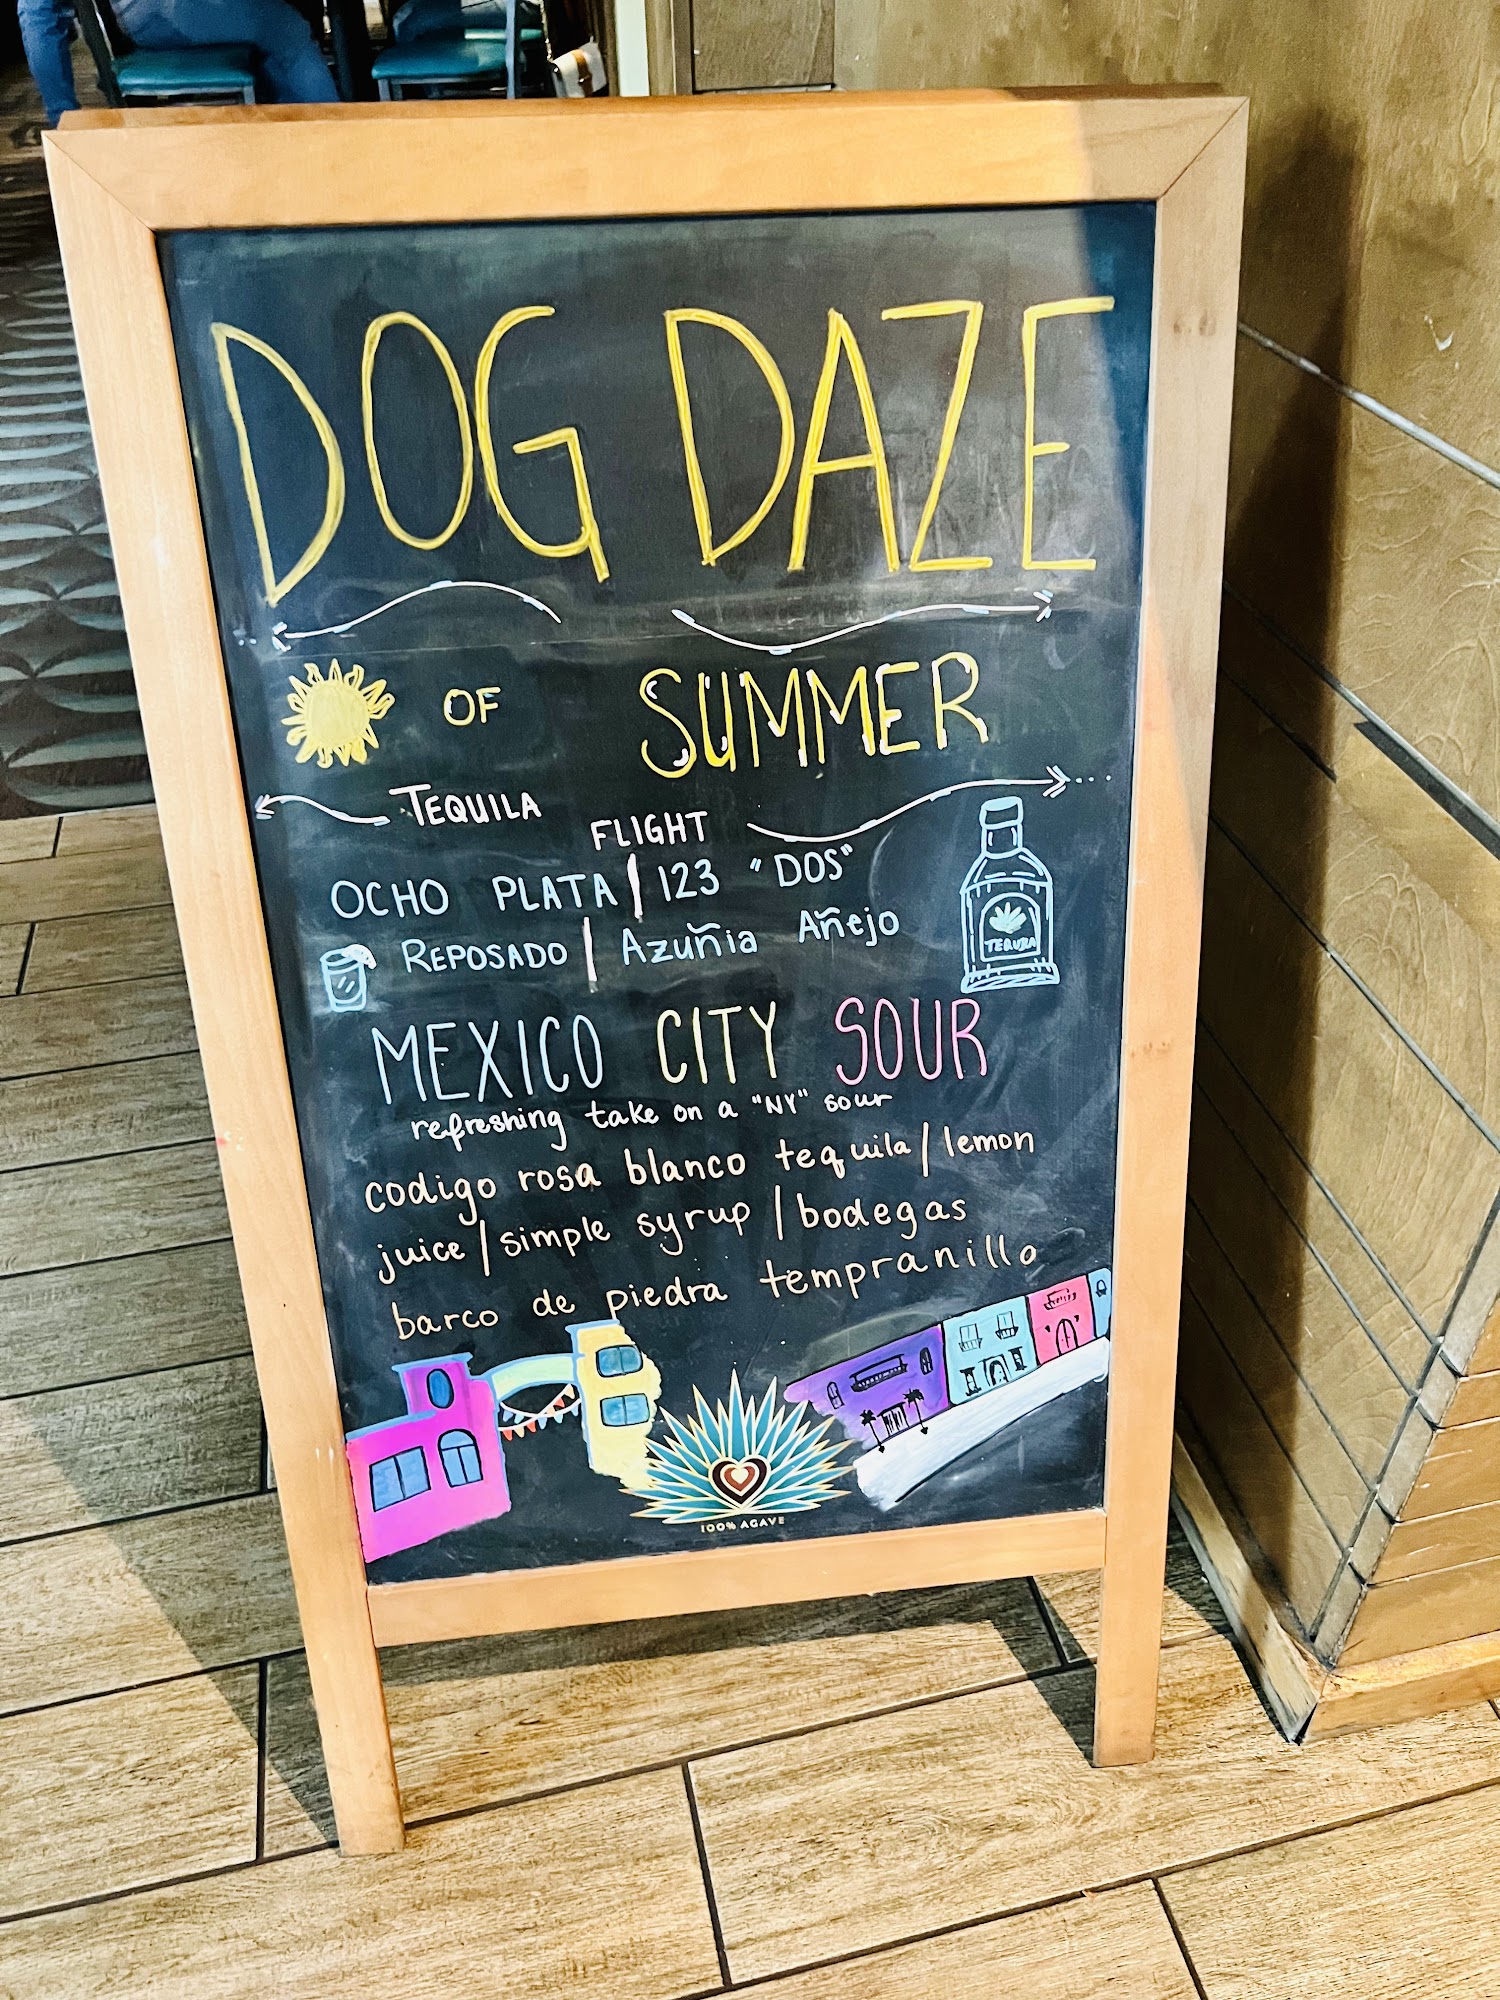 DOG DAZE
OF SUMMER
TEQUILA FLIGHT
OCHO PLATA | 123 "DOS"
REPOSADO | Azuñia Añejo
TEQUILA
MEXICO CITY SOUR
refreshing take on a "NY" sour
codigo rosa blanco tequila / lemon
juice / simple syrup / bodegas
barco de piedra tempranillo
100% AGAVE